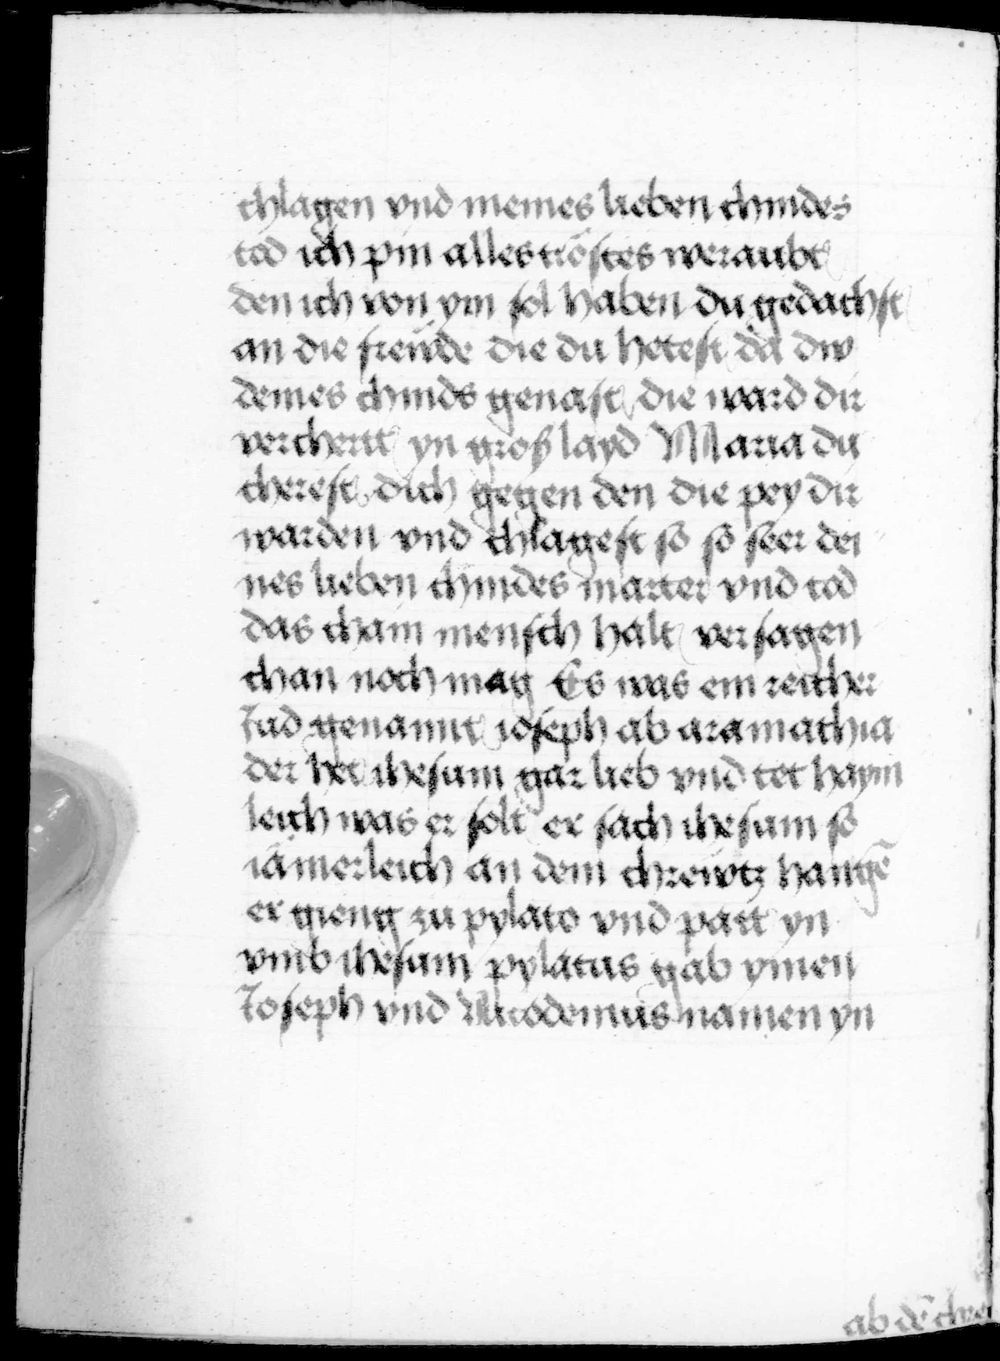 chlagen vnd meines lieben chindes
tod ich pin alles trostes weraubt
den ich von ym sol haben du gedachst
an die frewde die du hetest da dw
deines chinds genast die ward dir
verchertt yn groß layd Maria du
cherest dich gegen den die pey dir
warden vnd chlagest so so seer dei
nes lieben chindes marter vnd tod
das chain mensch halt versagen
chan noch mag Es was ein reicher
Jud genannt ioseph ab aramathia
der het ihesum gar lieb vnd tet haym
leich was er solt er sach ihesum so
iämerleich an dem chrewtz hangē
er gieng zu pylato vnd patt yn
vmb ihesum pylatus gab ymen
Joseph vnd Nicodemus namen yn
ab dē chre